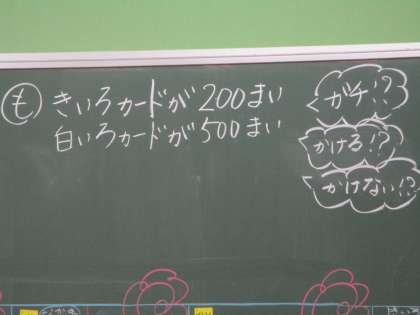 も きいろカードが200まい
白いろカードが500まい
ガチ!?
かける!?
かけない!?